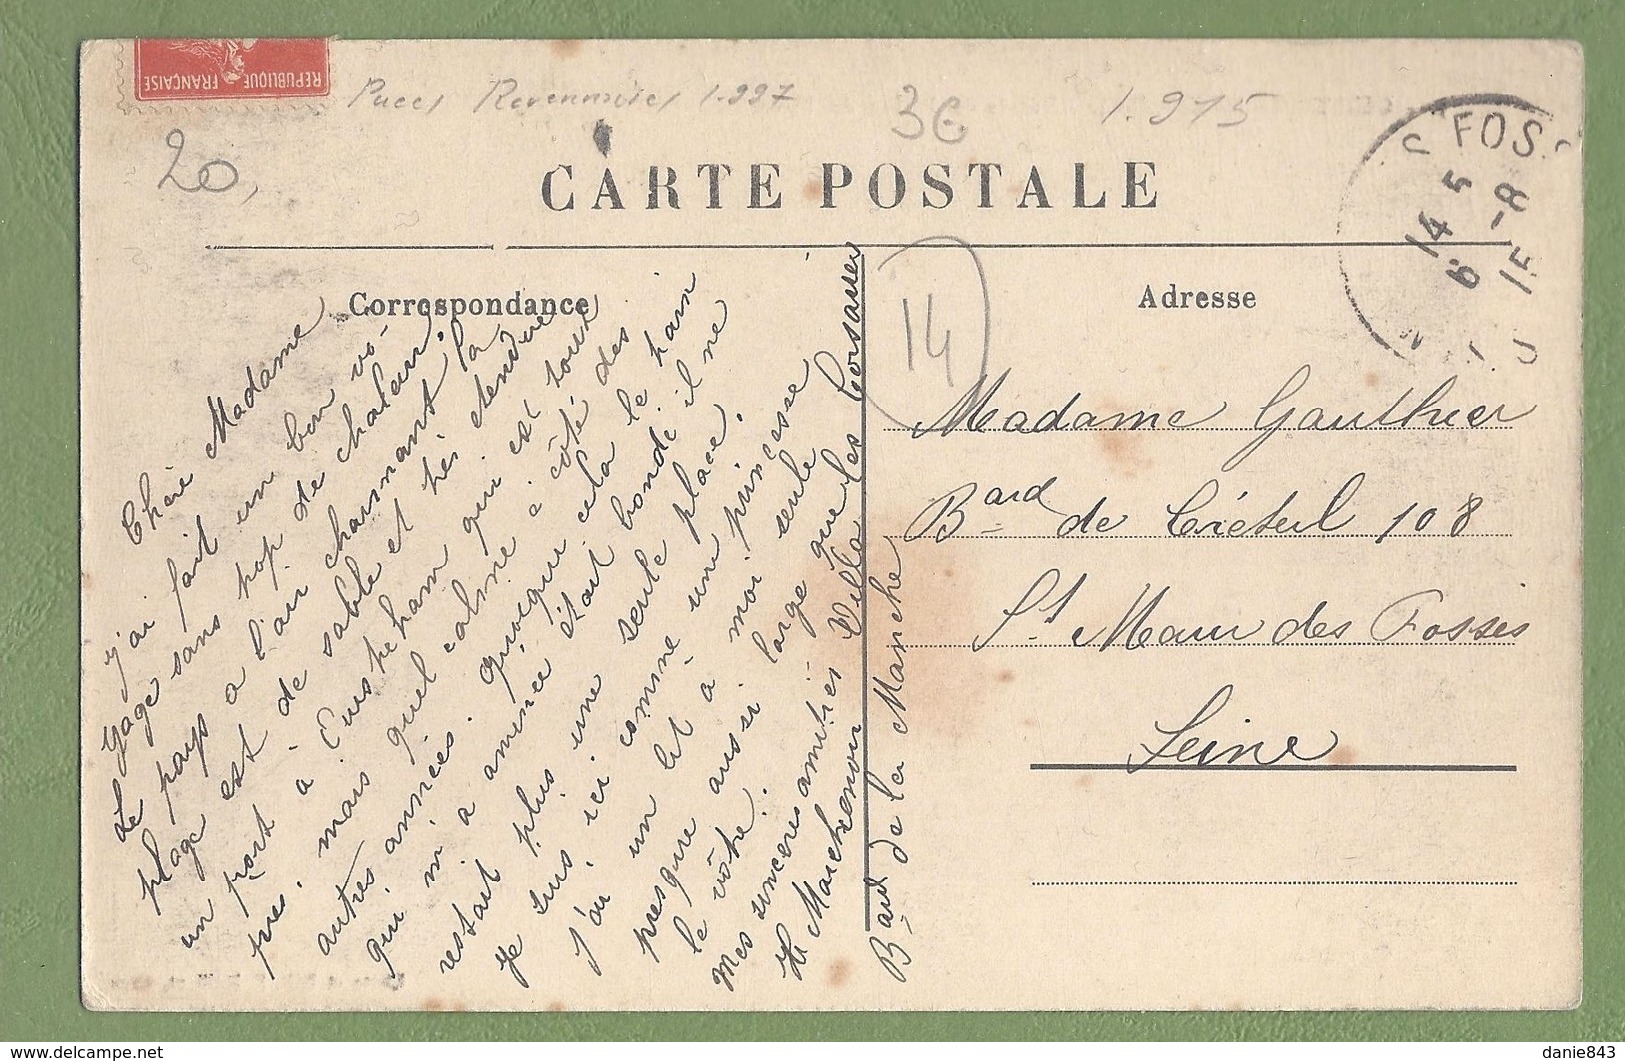 REPUBLIQUE FRANÇAISE
Puces 1.997
3€
1.915
20,
FOS
14 5
CARTE POSTALE
Correspondance
Adresse
14
Chère Madame
j'ai fait un bon vo-
yage sans trop de chaleur.
Le pays a l'air charmant la
plage est de sable et très étendue
un port à Ouistreham qui est tout
près. mais quel calme à côté des
autres années. quoique cela le train
qui m'a amenée était bondé il ne
restait plus une seule place.
Je suis ici comme une princesse
j'ai un lit à moi seule
presque aussi large que
le vôtre.
Mes sincères amitiés
H Marchenoir Villa les Corsaires
Bard de la Manche
Madame Gauthier
Bard de Créteil 108
St Maur des Fossés
Seine
danie843